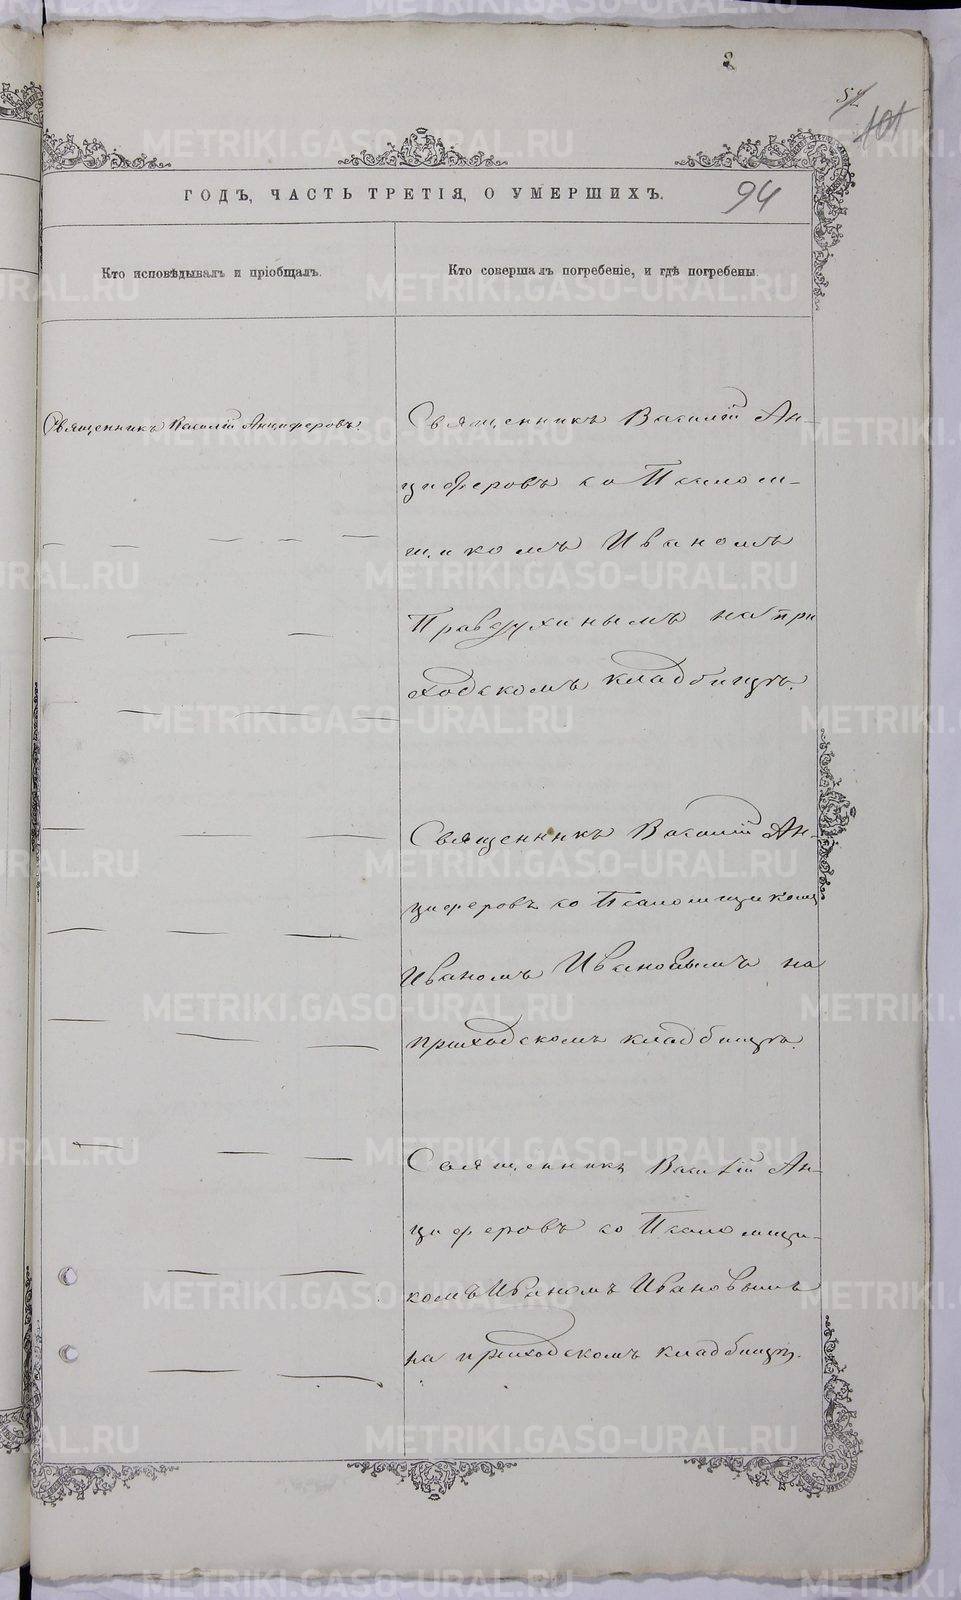 94
ГОДЪ, ЧАСТЬ ТРЕТІЯ, О УМЕРШИХЪ.
Кто исповѣдывалъ и пріобщалъ.
Кто совершалъ погребеніе, и гдѣ погребены.
Священникъ Василій Анциферовъ.
Священникъ Василій Ан-
циферовъ со Псалом-
щикомъ Иваномъ
на при
ходскомъ кладбищѣ.
Священникъ Василій Ан-
циферовъ со Псаломщикомъ
Иваномъ Ивановымъ на
приходскомъ кладбищѣ.
Священникъ Василій Ан-
циферовъ со Псаломщи-
комъ Иваномъ Ивановымъ
на приходскомъ кладбищѣ.
METRIKI.GASO-URAL.RU